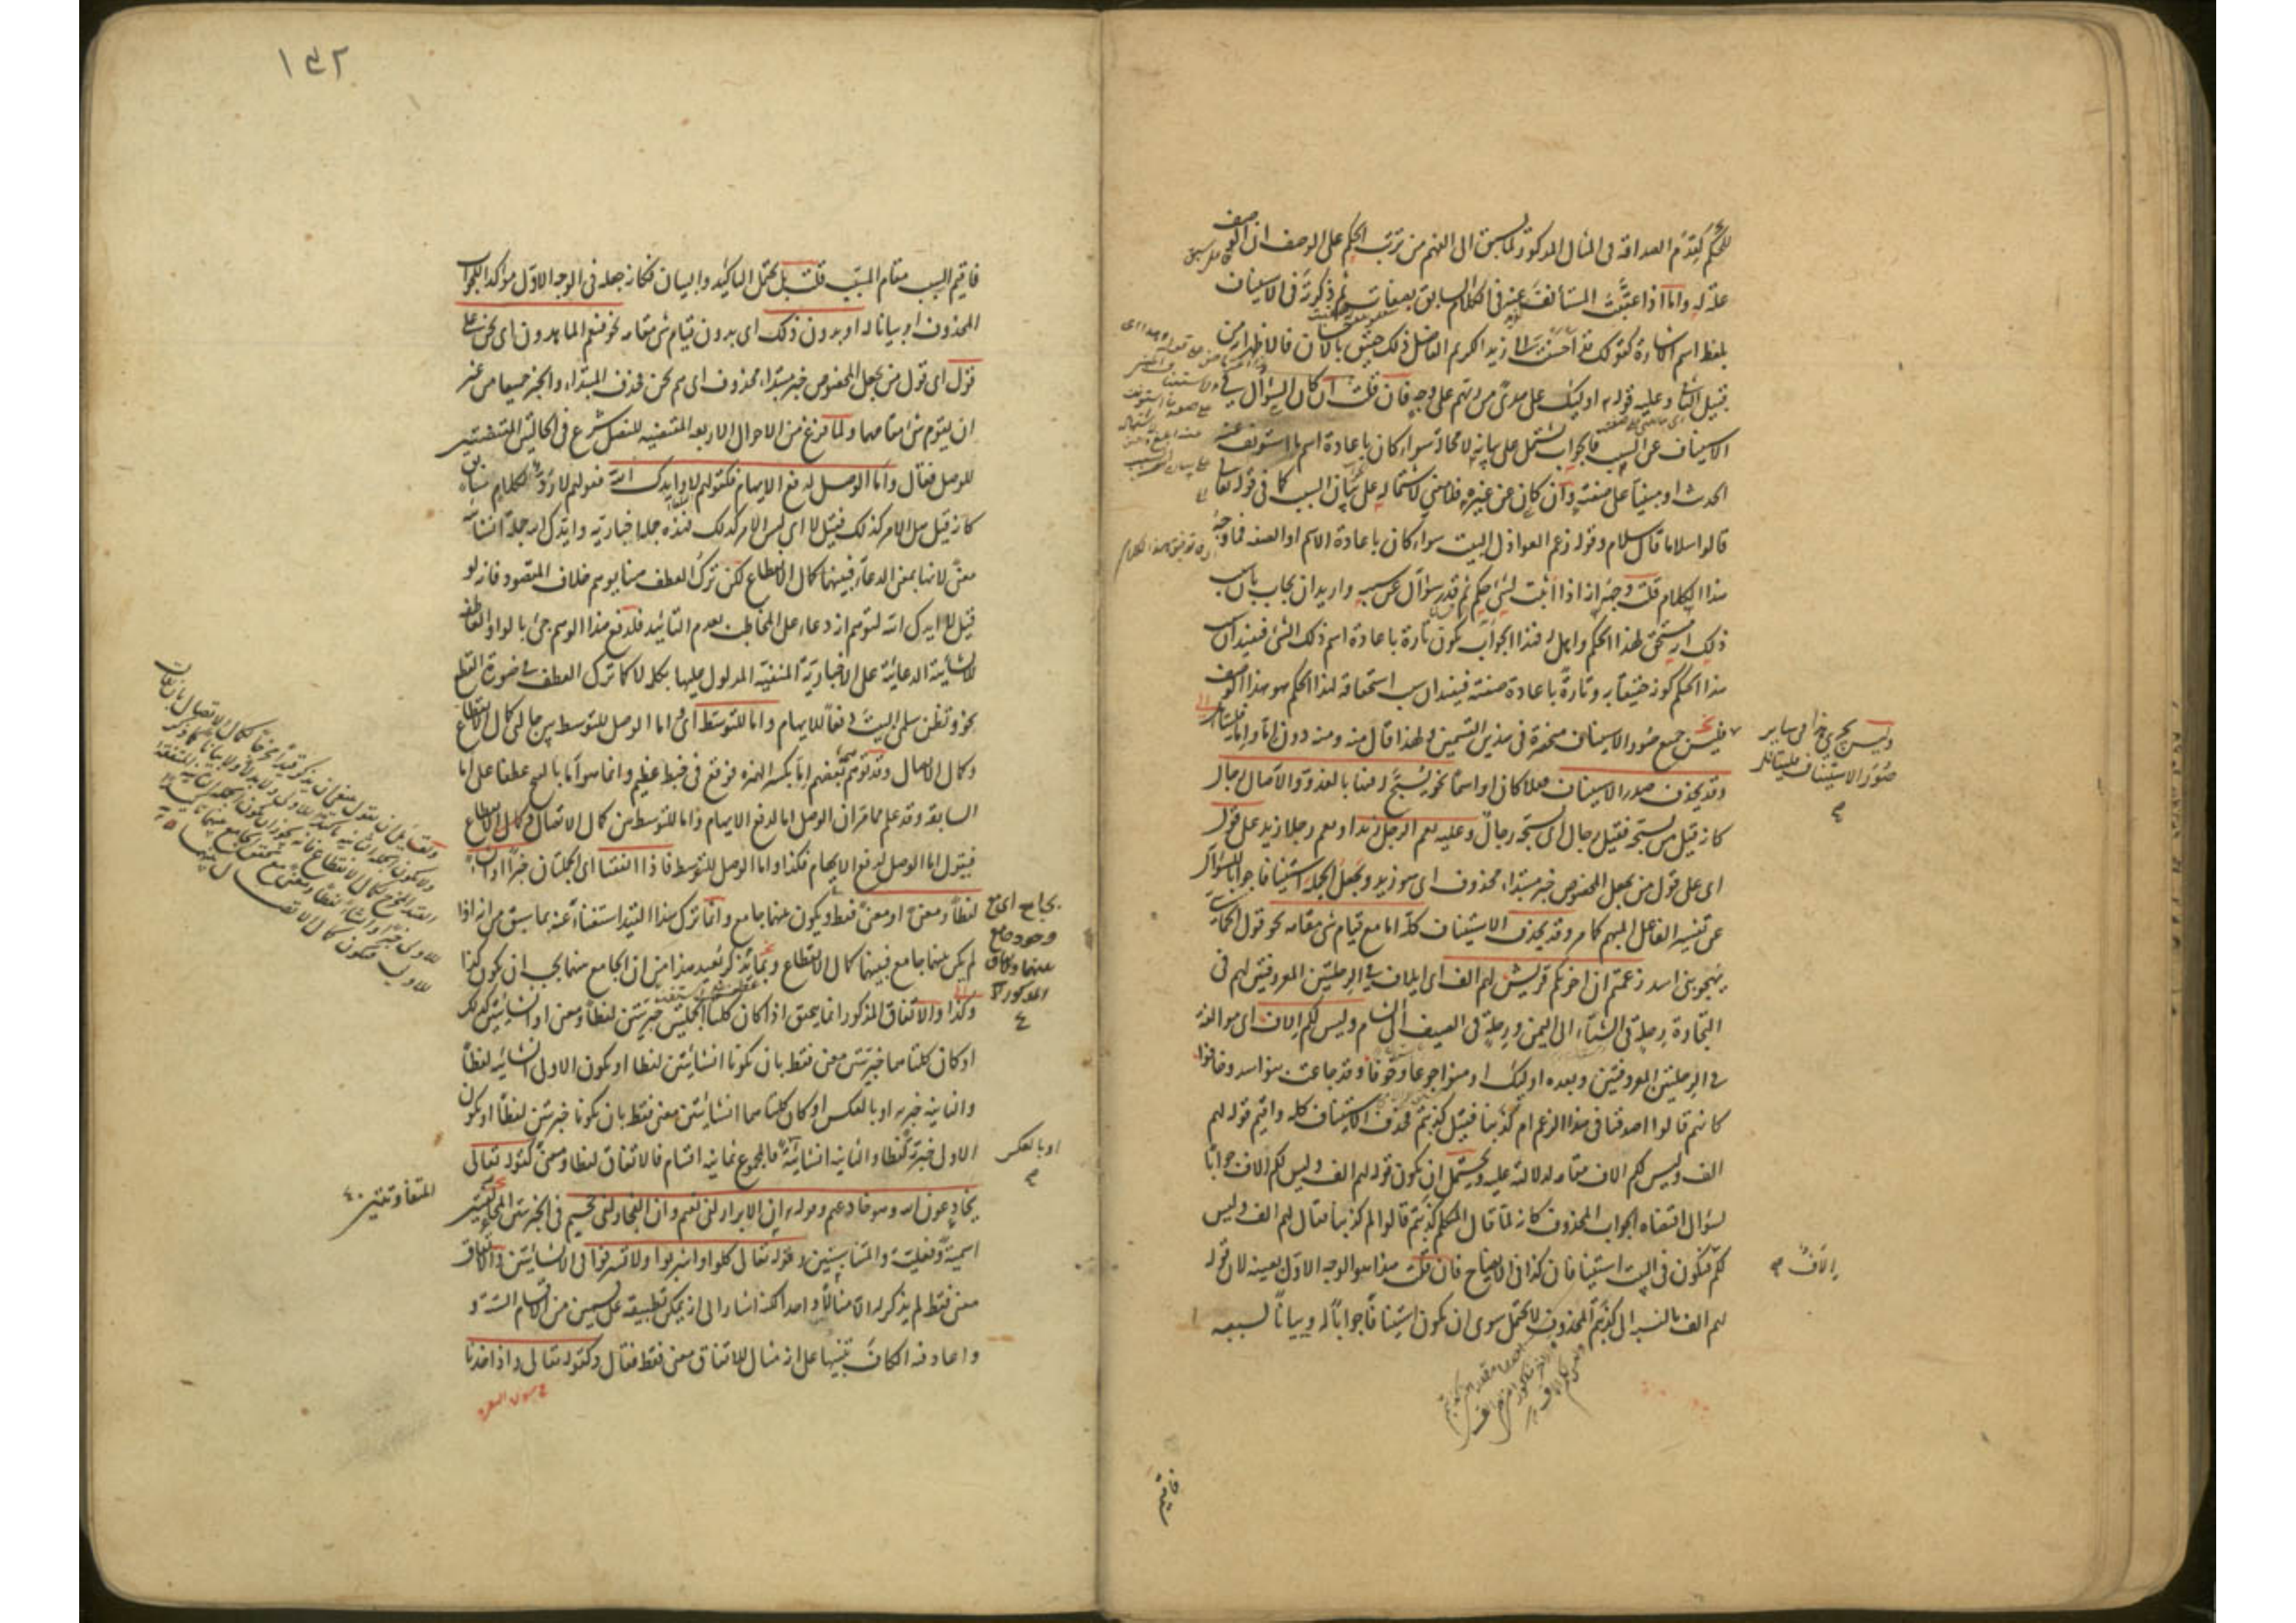 للحكم كقدم الصداقة فى المثال المذكور ولما يسبق الى الفهم من ترتب الحكم على الوصف ان الوصف
علة له واما اذا عقبت المستأنف عنه فى الكلام السابق بصفات ثم ذكرته فى الاستيناف
بلفظ اسم الاشارة كقولك قد احسنت الى زيد الكريم الفاضل ذلك حقيق بالاحسان فالاظهر انه من
قبيل الثانى وعليه قوله تع اولئك على هدى من ربهم على وجه فان قلت ان كان السؤال فى
الاستيناف عن السبب فالجواب يشتمل على بيانه لا محالة سواء كان باعادة اسم ما استونف عنه
الحديث او مبنيا على صفته وان كان عن غيره فلا معنى لاشتماله على بيان السبب كما فى قوله تعالى
قالوا سلاما قال سلام وقوله زعم العواذل البيت سواء كان باعادة الاسم او الصفة فما وجه
هذا الكلام قلت وجهه انه اذا اثبت لشئ حكم ثم قدر سؤال عن سببه واريد ان يجاب بان سبب
ذلك انه مستحق لهذا الحكم واهل له فهذا الجواب يكون تارة باعادة اسم ذلك الشئ فيفيد ان سبب
هذا الحكم كونه حقيقا به وتارة باعادة صفته فيفيد ان سبب استحقاقه لهذا الحكم هو هذا الوصف
فليس جميع صور الاستيناف منحصرة فى هذين القسمين ولهذا قال منه ومنه دون اما واما
وقد يحذف صدر الاستيناف فعلا كان او اسما نحو يسبح له فيها بالغدو والآصال رجال
كانه قيل من يسبحه فقيل رجال اى يسبحه رجال وعليه نعم الرجل زيد او نعم رجلا زيد على قول
اى على قول من يجعل المخصوص خبر مبتداء محذوف اى هو زيد ويجعل الجملة استينافا جوابا للسؤال
عن تفسير الفاعل المبهم كما مر وقد يحذف الاستيناف كله اما مع قيام شئ مقامه نحو قول الحماسى
يهجو بنى اسد زعمتم ان اخوتكم قريش لهم الف اى ايلاف فى الرحلتين المعروفتين لهم فى
التجارة رحلة فى الشتاء الى اليمن ورحلة فى الصيف الى الشام وليس لكم الاف اى موالفة
فى الرحلتين المعروفتين وبعده اولئك اومنوا جوعا وخوفا وقد جاعت بنو اسد وخافوا
كانهم قالوا اصدقنا فى هذا الزعم ام كذبنا فقيل كذبتم فحذف الاستيناف كله واقيم قوله لهم
الف وليس لكم الاف مقامه لدلالته عليه ويحتمل ان يكون قوله لهم الف وليس لكم الاف جوابا
لسؤال اقتضاه الجواب المحذوف كانه لما قال المتكلم كذبتم قالوا لم كذبنا فقال لهم الف وليس
لكم فيكون فى البيت استينافان كذا فى الايضاح فان قلت هذا هو الوجه الاول بعينه لان قوله
لهم الف بالنسبة الى كذبتم المحذوف لا يحتمل سوى ان يكون استينافا جوابا له وبيانا لسببه
وليس يجرى هذا فى سائر
صور الاستيناف فليتأمل
الاف
فاقيم
١٤٢
فاقيم السبب مقام المسبب قلت بل يحتمل التاكيد والبيان فكانه جعله فى الوجه الاول مؤكدا للجواب
المحذوف او بيانا له او بدون ذلك اى بدون قيام شئ مقامه نحو فنعم الماهدون اى نحن على
قول اى قول من يجعل المخصوص خبر مبتداء محذوف اى هم نحن فحذف المبتداء والخبر جميعا من غير
ان يقوم شئ مقامهما ولما فرغ من الاحوال الاربعة المقتضية للفصل شرع فى الحالتين المقتضيتين
للوصل فقال واما الوصل لدفع الايهام فكقولهم لا وايدك الله فقولهم لا رد لكلام سابق
كانه قيل هل الامر كذلك فقيل لا اى ليس الامر كذلك فهذه جملة اخبارية وايدك الله جملة انشائية
معنى لانها بمعنى الدعاء فبينهما كمال الانقطاع لكن ترك العطف هنا يوهم خلاف المقصود فانه لو
قيل لا ايدك الله لتوهم انه دعاء على المخاطب بعدم التائيد فلدفع هذا الوهم جئ بالواو العاطفة
للانشائية الدعائية على الاخبارية المنفية المدلول عليها بكلمة لا كما ترك العطف فى صورة القطع
نحو وتظن سلمى البيت دفعا للايهام واما للتوسط اى اما الوصل للتوسط بين حالتى كمال الانقطاع
وكمال الاتصال وقد توهم بعضهم اما بكسر الهمزة فوقع فى خبط عظيم وانما هو اما بالفتح عطفا على اما
السابقة وقد علم مما مر ان الوصل اما لدفع الايهام واما للتوسط بين كمال الاتصال وكمال الانقطاع
فيقول اما الوصل لدفع الايهام فكذا واما الوصل للتوسط فاذا اتفقتا اى الجملتان خبرا او انشاء
لفظا ومعنى او معنى فقط ويكون بينهما جامع وانما ترك هذا القيد استغناء عنه بما سبق من انه اذا
لم يكن بينهما جامع فبينهما كمال الانقطاع وبما يذكر بعيد هذا من ان الجامع بينهما يجب ان يكون كذا
وكذا والاتفاق المذكور انما يتحقق اذا كان كلتا الجملتين خبريتين لفظا ومعنى او انشائيتين كذلك
او كان كلتاهما خبريتين معنى فقط بان تكونا انشائيتين لفظا او يكون الاولى انشائية لفظا
والثانية خبرية او بالعكس او كان كلتاهما انشائيتين معنى فقط بان تكونا خبريتين لفظا او يكون
الاولى خبرية لفظا والثانية انشائية فالمجموع ثمانية اقسام فالاتفاق لفظا ومعنى كقوله تعالى
يخادعون الله وهو خادعهم وقوله تع ان الابرار لفى نعيم وان الفجار لفى جحيم فى الخبريتين المختلفتين
اسمية وفعلية والمتناسبتين وقوله تعالى كلوا واشربوا ولا تسرفوا فى الانشائيتين والاتفاق
معنى فقط لم يذكر له الا مثالا واحدا لكنه اشار الى انه يمكن تطبيقه على قسمين من الاقسام الستة و
واعاد فيه الكاف تنبيها على انه مثال للاتفاق معنى فقط فقال وكقوله تعالى واذ اخذنا
بجامع اى مع
وجود جامع
بينهما والاتفاق
المذكور
او بالعكس